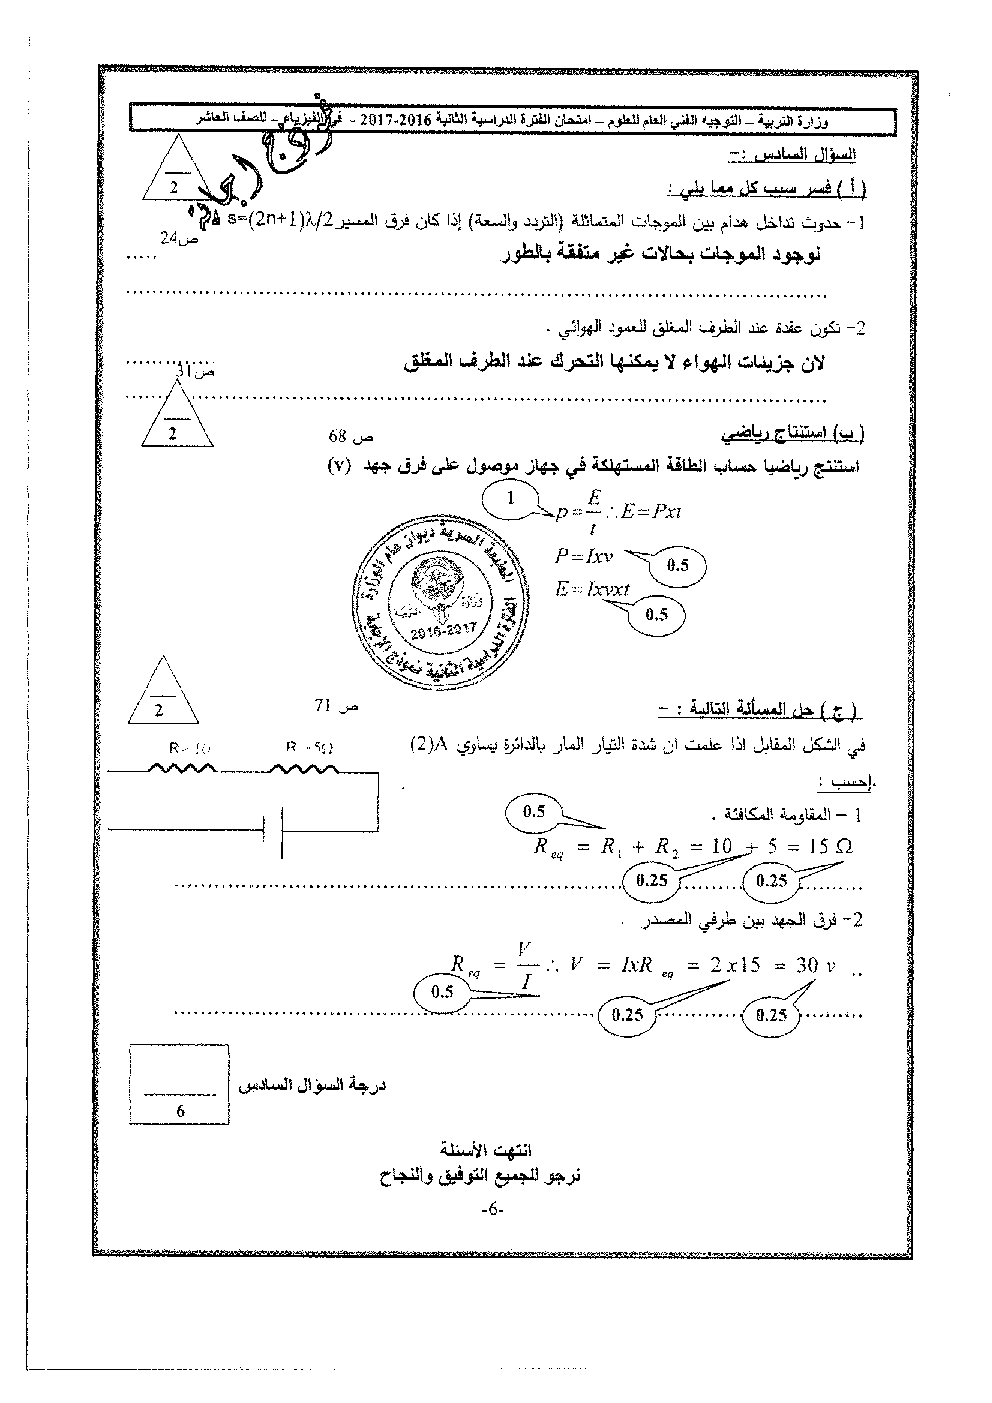 وزارة التربية – التوجيه الفني العام للعلوم – امتحان الفترة الدراسية الثانية 2016-2017 - في الفيزياء – للصف العاشر
السؤال السادس :-
2
( أ ) فسر سبب كل مما يلي :
1- حدوث تداخل هدام بين الموجات المتماثلة (التردد والسعة) إذا كان فرق المسير s=(2n+1)λ/2
ص24
لوجود الموجات بحالات غير متفقة بالطور
2- تكون عقدة عند الطرف المغلق للعمود الهوائي .
لان جزيئات الهواء لا يمكنها التحرك عند الطرف المغلق
ص31
2
( ب) استنتاج رياضي
ص 68
استنتج رياضيا حساب الطاقة المستهلكة في جهاز موصول على فرق جهد (v)
1
p=E/t ∴E=Pxt
P=Ixv
0.5
E=Ixvxt
0.5
الفترة الدراسية الثانية نموذج الإجابة
2016-2017
2
( ج ) حل المسألة التالية : -
ص 71
في الشكل المقابل اذا علمت ان شدة التيار المار بالدائرة يساوي A(2)
R=5Ω
إحسب :
1 – المقاومة المكافئة .
0.5
R eq = R1 + R2 = 10 + 5 = 15 Ω
0.25
0.25
2- فرق الجهد بين طرفي المصدر .
R eq = V/I ∴ V = IxR eq = 2x15 = 30 v
0.5
0.25
0.25
درجة السؤال السادس
6
انتهت الأسئلة
نرجو للجميع التوفيق والنجاح
-6-